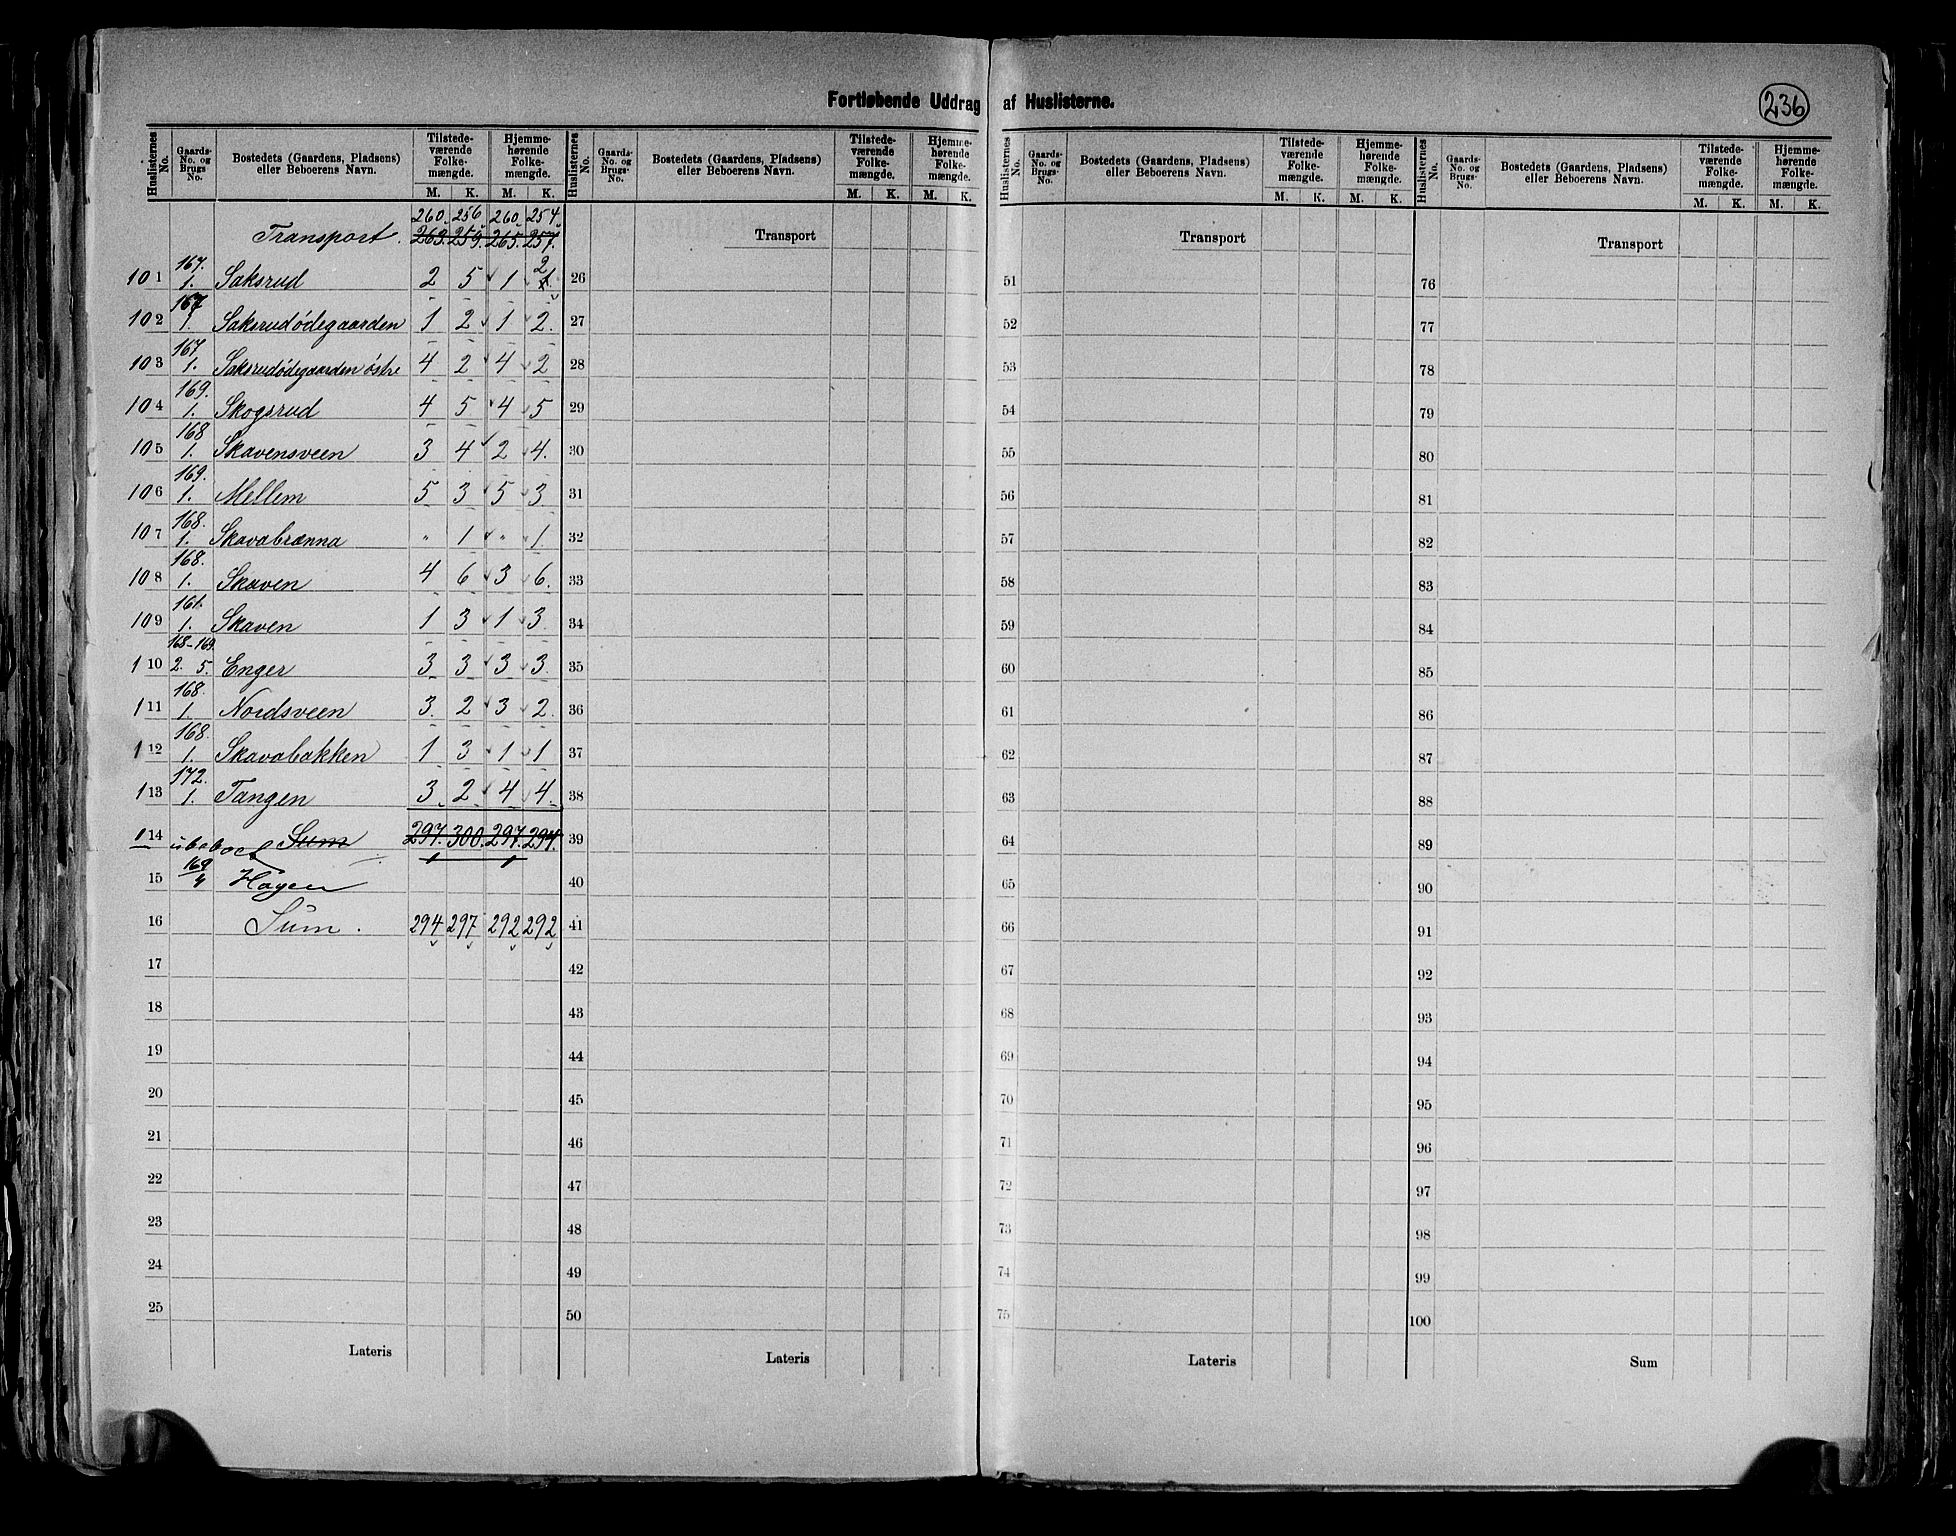 Fortløbende Uddrag af Huslisterne.
236
Huslisternes No. Gaards-No. og Brugs-No. Bostedets (Gaardens, Pladsens) eller Beboerens Navn. Tilstedeværende Folkemængde. M. K. Hjemmehørende Folkemængde. M. K.
Huslisternes No. Gaards-No. og Brugs-No. Bostedets (Gaardens, Pladsens) eller Beboerens Navn. Tilstedeværende Folkemængde. M. K. Hjemmehørende Folkemængde. M. K.
Huslisternes No. Gaards-No. og Brugs-No. Bostedets (Gaardens, Pladsens) eller Beboerens Navn. Tilstedeværende Folkemængde. M. K. Hjemmehørende Folkemængde. M. K.
Huslisternes No. Gaards-No. og Brugs-No. Bostedets (Gaardens, Pladsens) eller Beboerens Navn. Tilstedeværende Folkemængde. M. K. Hjemmehørende Folkemængde. M. K.
260. 256 260. 254.
Transport. 263. 259. 265. 257.
101 167. 1. Saksrud 2 5 1 2
102 167 1. Saksrudødegaarden 1 2 1 2.
103 167. 1. Saksrudødegaarden østre 4 2 4 2
104 169. 1. Skogsrud 4 5 4 5
105 168 1. Skavensveen 3 4 2 4.
106 169. 1. Mellem 5 3 5 3
107 168. 1. Skavabrænna " 1 " 1.
108 168. 1. Skaven 4 6 3 6.
109 161. 1. Skaven 1 3 1 3.
110 168-169. 2. 5. Enger 3 3 3 3.
111 168. 1. Nordsveen 3. 2 3 2.
112 168. 1. Skavabakken 1 3 1 1
113 172. 1. Tangen 3 2 4 4
114 ubeboet Sum 297. 300. 297. 294.
15 169/4 Hagen
16 Sum. 294 297 292 292
17
18
19
20
21
22
23
24
25
Lateris
Transport
26
27
28
29
30
31
32
33
34
35
36
37
38
39
40
41
42
43
44
45
46
47
48
49
50
Lateris
Transport
51
52
53
54
55
56
57
58
59
60
61
62
63
64
65
66
67
68
69
70
71
72
73
74
75
Lateris
Transport
76
77
78
79
80
81
82
83
84
85
86
87
88
89
90
91
92
93
94
95
96
97
98
99
100
Sum